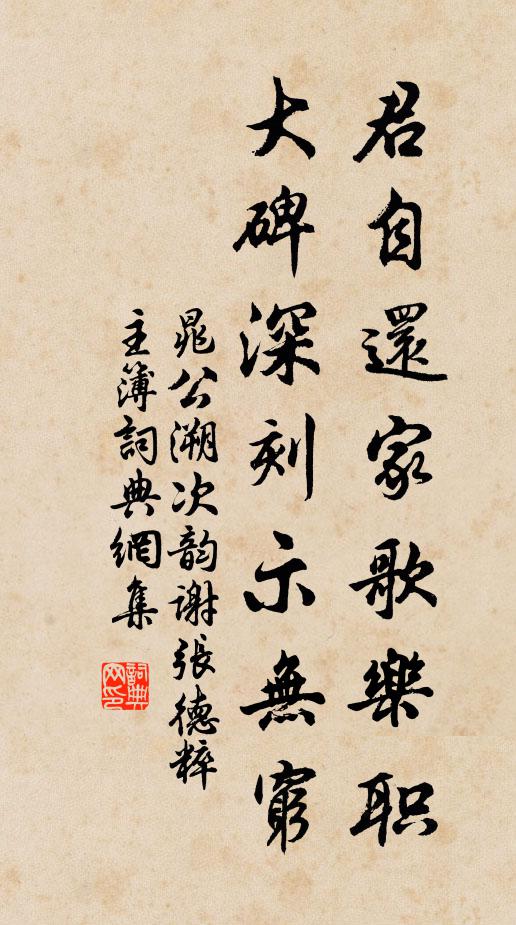 君自還家歌樂职
大碑深刻示無窮
晁公溯次韵谢張德粹
主簿詞典網集
詞典网印